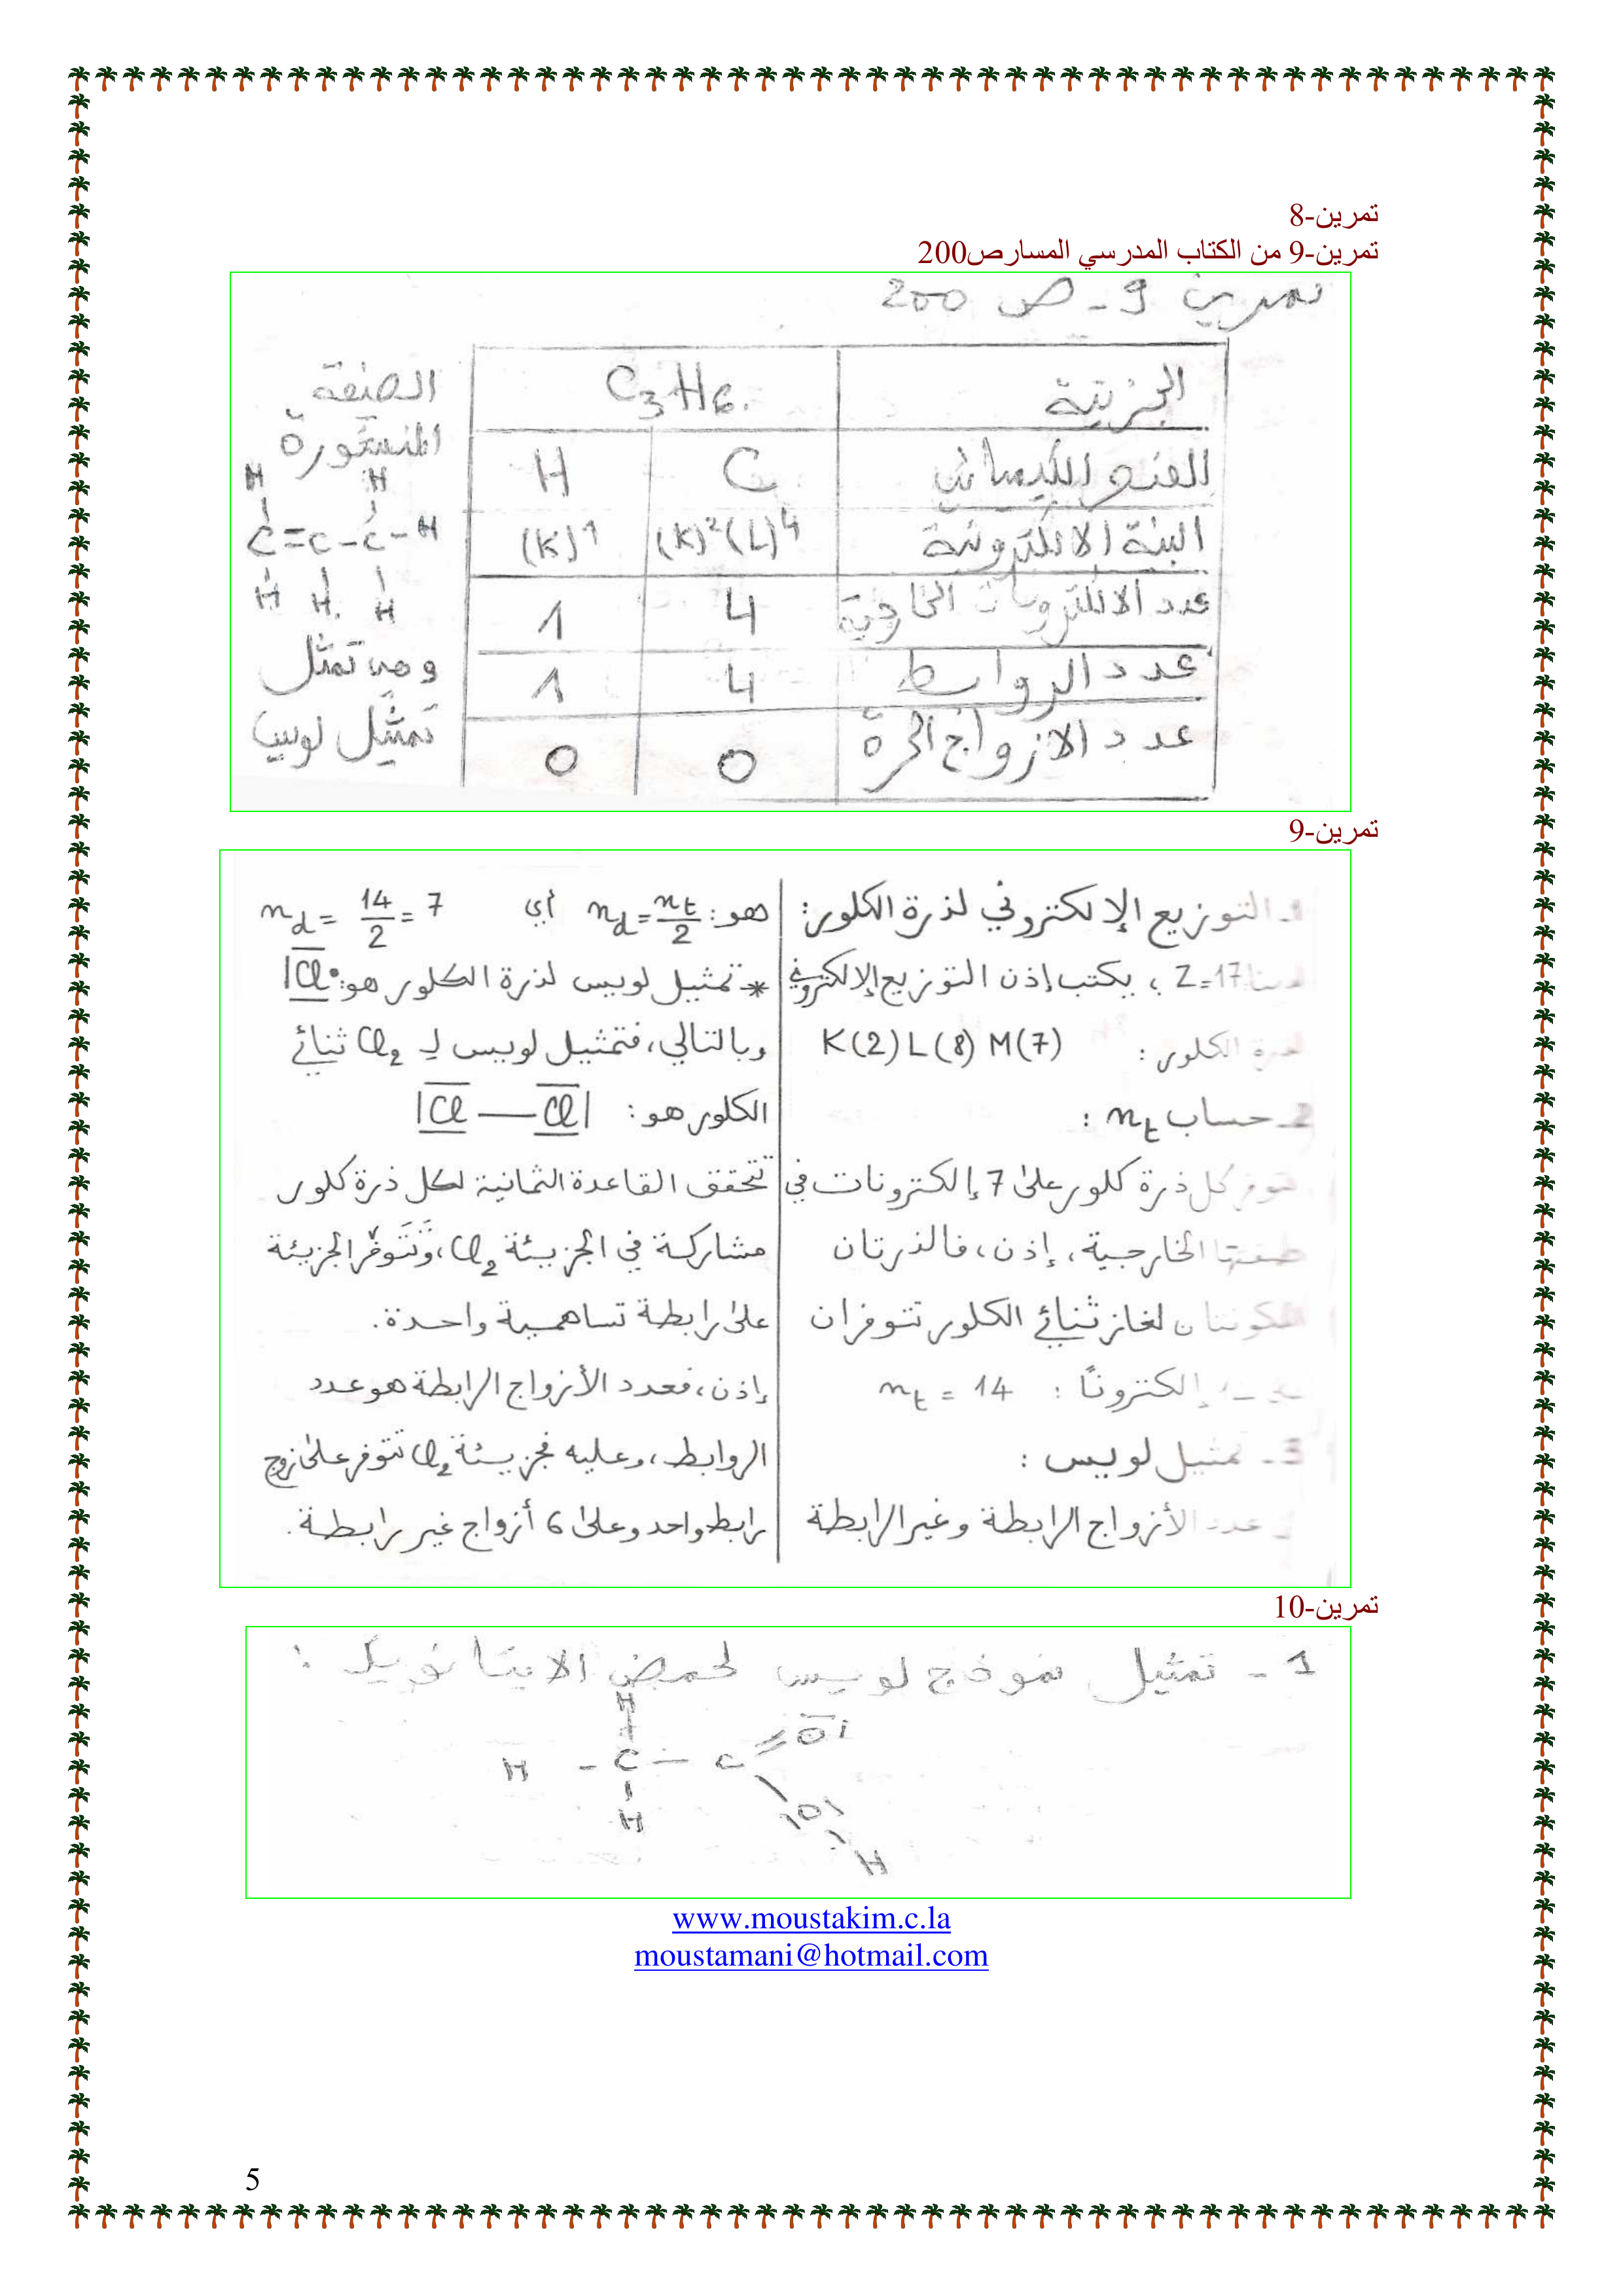 تمرين-8
تمرين-9 من الكتاب المدرسي المسارص200
تمرين 9 - ص 200
الجزيئة C3H6
العنصر الكيميائي C H
البنية الالكترونية (K)²(L)⁴ (K)¹
عدد الالكترونات الخارجية 4 1
عدد الروابط 4 1
عدد الازواج الحرة 0 0
الصيغة
المنشورة
H H
C=C-C-H
H H H
وهي تمثل
تمثيل لويس
تمرين-9
1- التوزيع الإلكتروني لذرة الكلور:
لدينا Z=17 ، يكتب إذن التوزيع الإلكتروني
لذرة الكلور: K(2) L(8) M(7)
2- حساب nt :
تتوفر كل ذرة كلور على 7 إلكترونات في
طبقتها الخارجية، إذن، فالذرتان
المكونتان لغاز ثنائي الكلور تتوفران
إلكترونًا : nt = 14
3- تمثيل لويس :
عدد الأزواج الرابطة وغير الرابطة
هو: nd = nt/2 أي nd = 14/2 = 7
* تمثيل لويس لذرة الكلور هو: |Cl•
وبالتالي، فتمثيل لويس لـ Cl2 ثنائي
الكلور هو: |Cl — Cl|
تتحقق القاعدة الثمانية لكل ذرة كلور
مشاركة في الجزيئة Cl2، وتتوفر الجزيئة
على رابطة تساهمية واحدة.
إذن، فعدد الأزواج الرابطة هو عدد
الروابط، وعليه فجزيئة Cl2 تتوفر على زوج
رابط واحد وعلى 6 أزواج غير رابطة.
تمرين-10
1 - تمثيل نموذج لويس لحمض الايثانويك :
H
H - C - C = O|
H |O|
H
www.moustakim.c.la
moustamani@hotmail.com
5